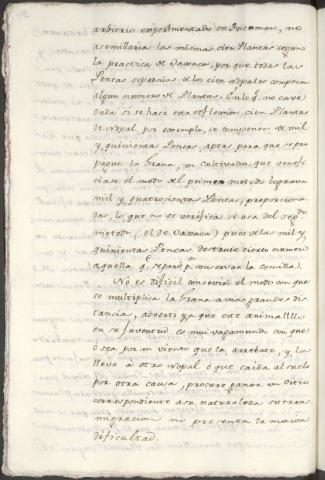 arbitrio experimentado en Yucatan, no
asemillaria las mismas cien Plantas segun
la practica de Oaxaca, por que todas las
Pencas separadas de los cien nopales componen
algun numero de Plantas. En lo q.e no cave
duda si se hace esta reflexion: cien Plantas
de nopal por exemplo, se componen de mil
y quinientas Pencas, aptas para que se pro
pague la Grana, un cultivador que venefi
ciase el modo del primer metodo lograva
mil y quatrocientas Pencas, proporciona
das, lo que no se verifica si usa del seg.do
metodo (el de Oaxaca) pues de las mil y
quinientas Pencas destruie cierto numero
aquella q.e separó p.a conservar la semilla.
No es dificil concevir el modo con que
se multiplica la Grana a mas grande dis
tancia, adverti ya que este animalillo
en su juventud es mui vagamundo con que
ó sea por un viento que lo arrebate, y lo
lleve á otro nopal ó que caida al suelo
por otra causa, procure ganar un sitio
correspondiente a su naturaleza su trans
migracion no presenta la maior
dificultad.